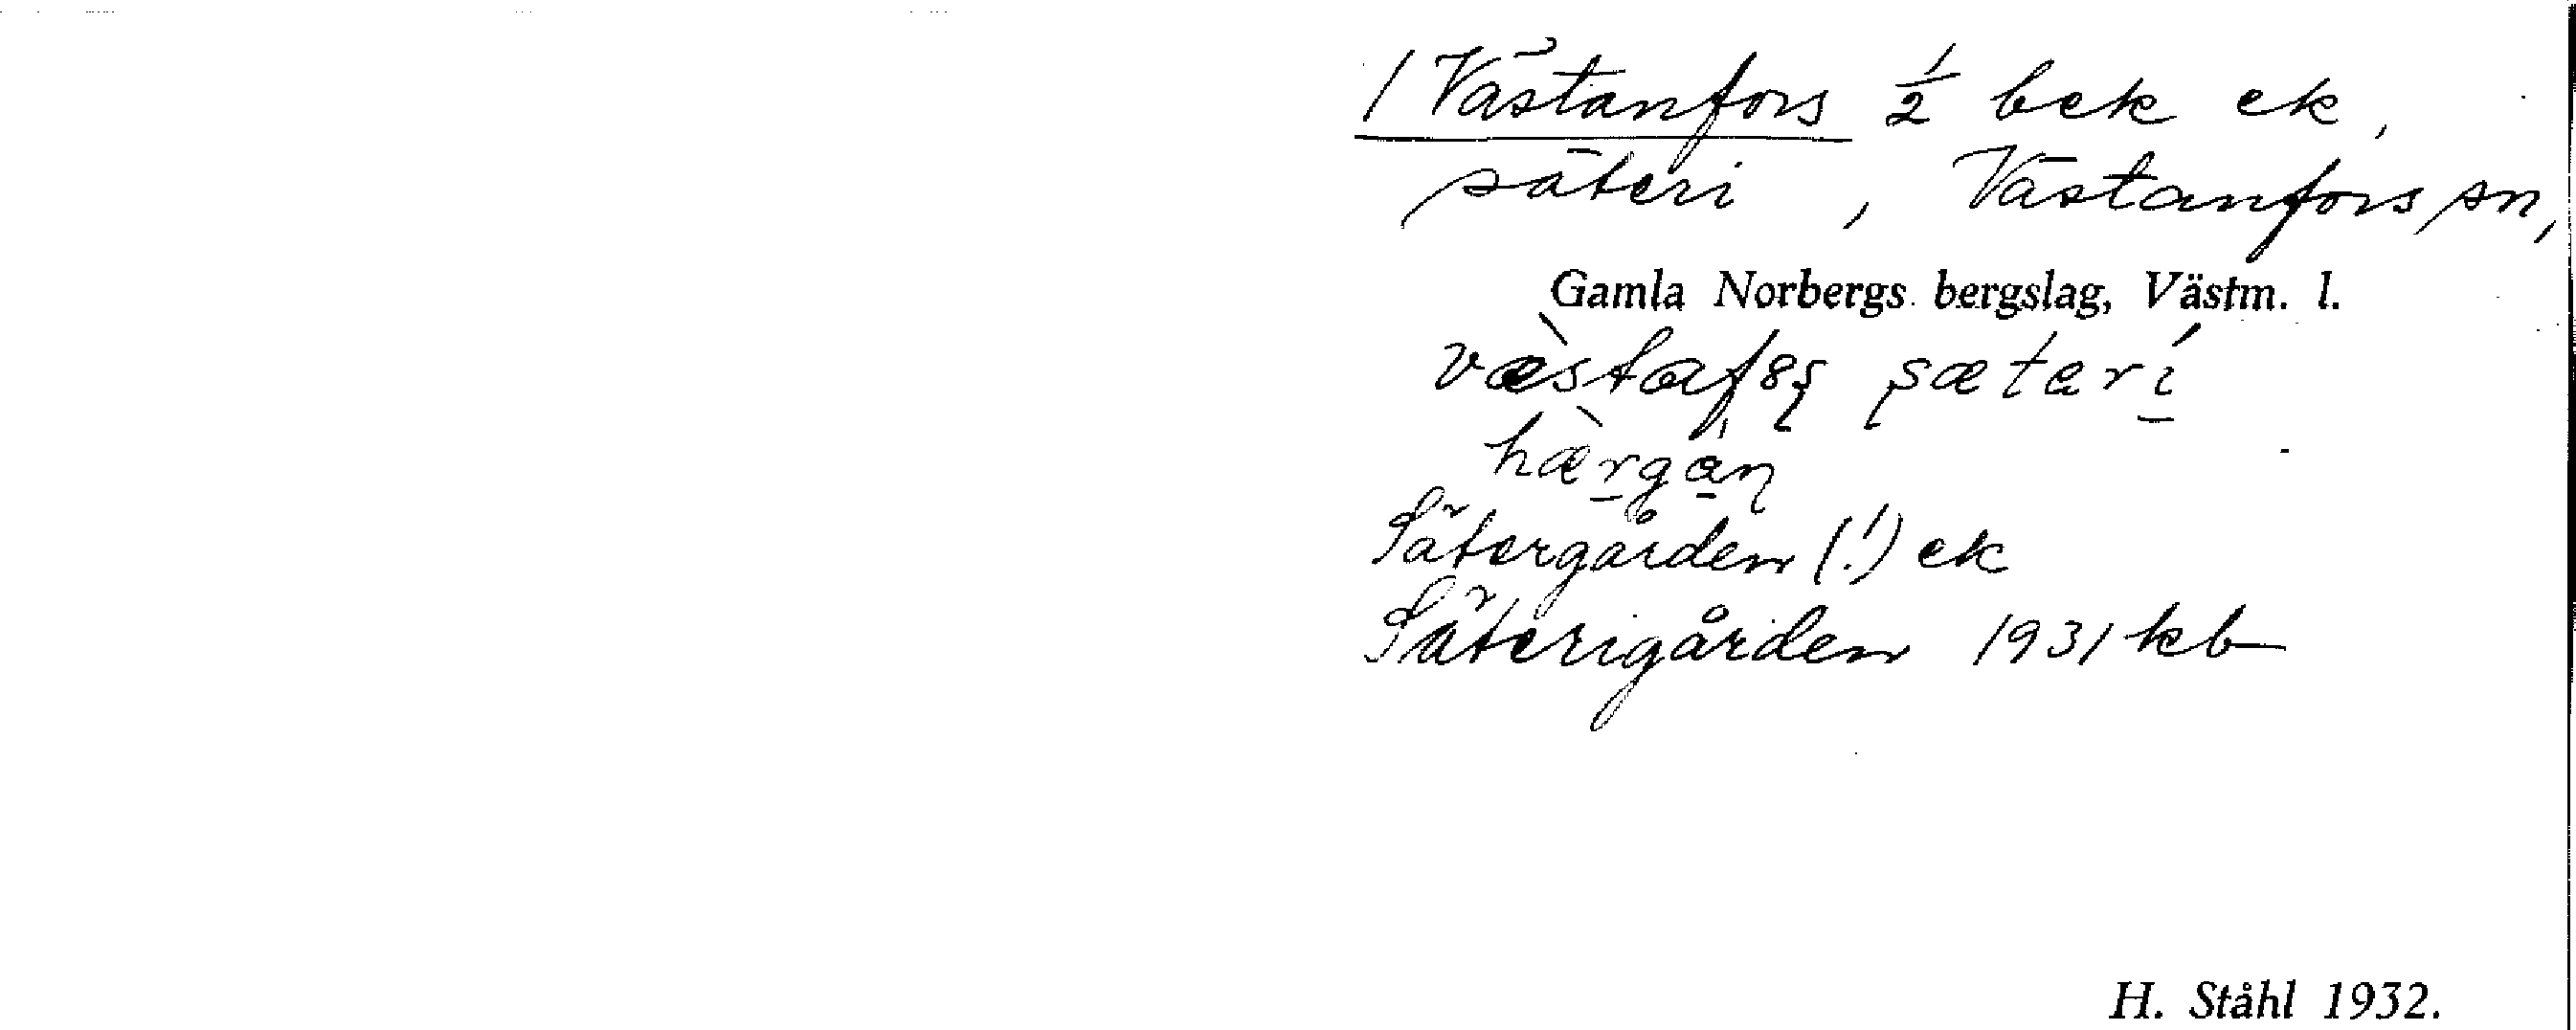 / Västanfors ½ bek ek,
säteri, Västanfors sn,
Gamla Norbergs bergslag, Västm. l.
sæterí
Sätergården (!) ek
Säterigården 1931 kb
H. Ståhl 1932.